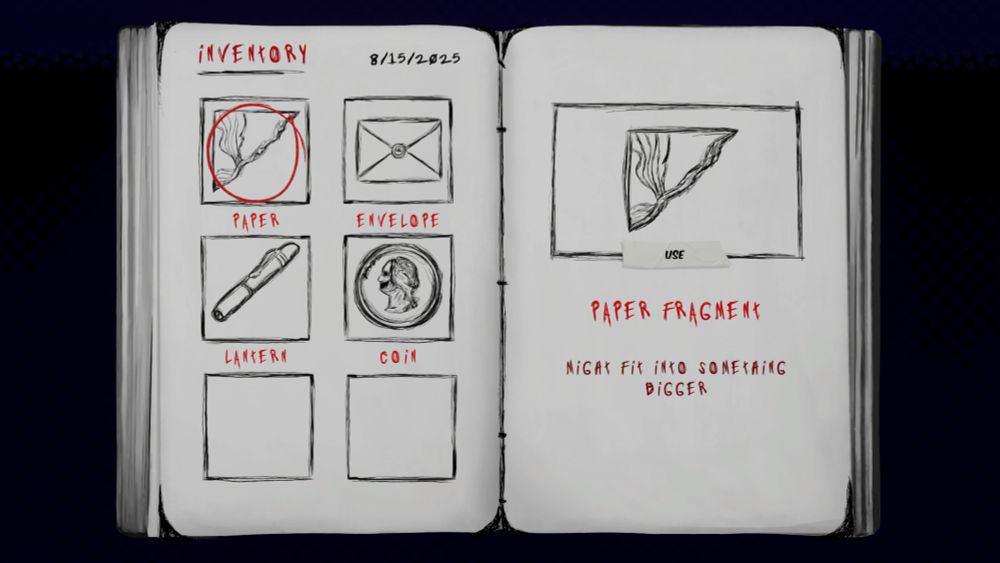 INVENTORY
8/15/2025
PAPER
ENVELOPE
LANTERN
COIN
USE
PAPER FRAGMENT
MIGHT FIT INTO SOMETHING
BIGGER